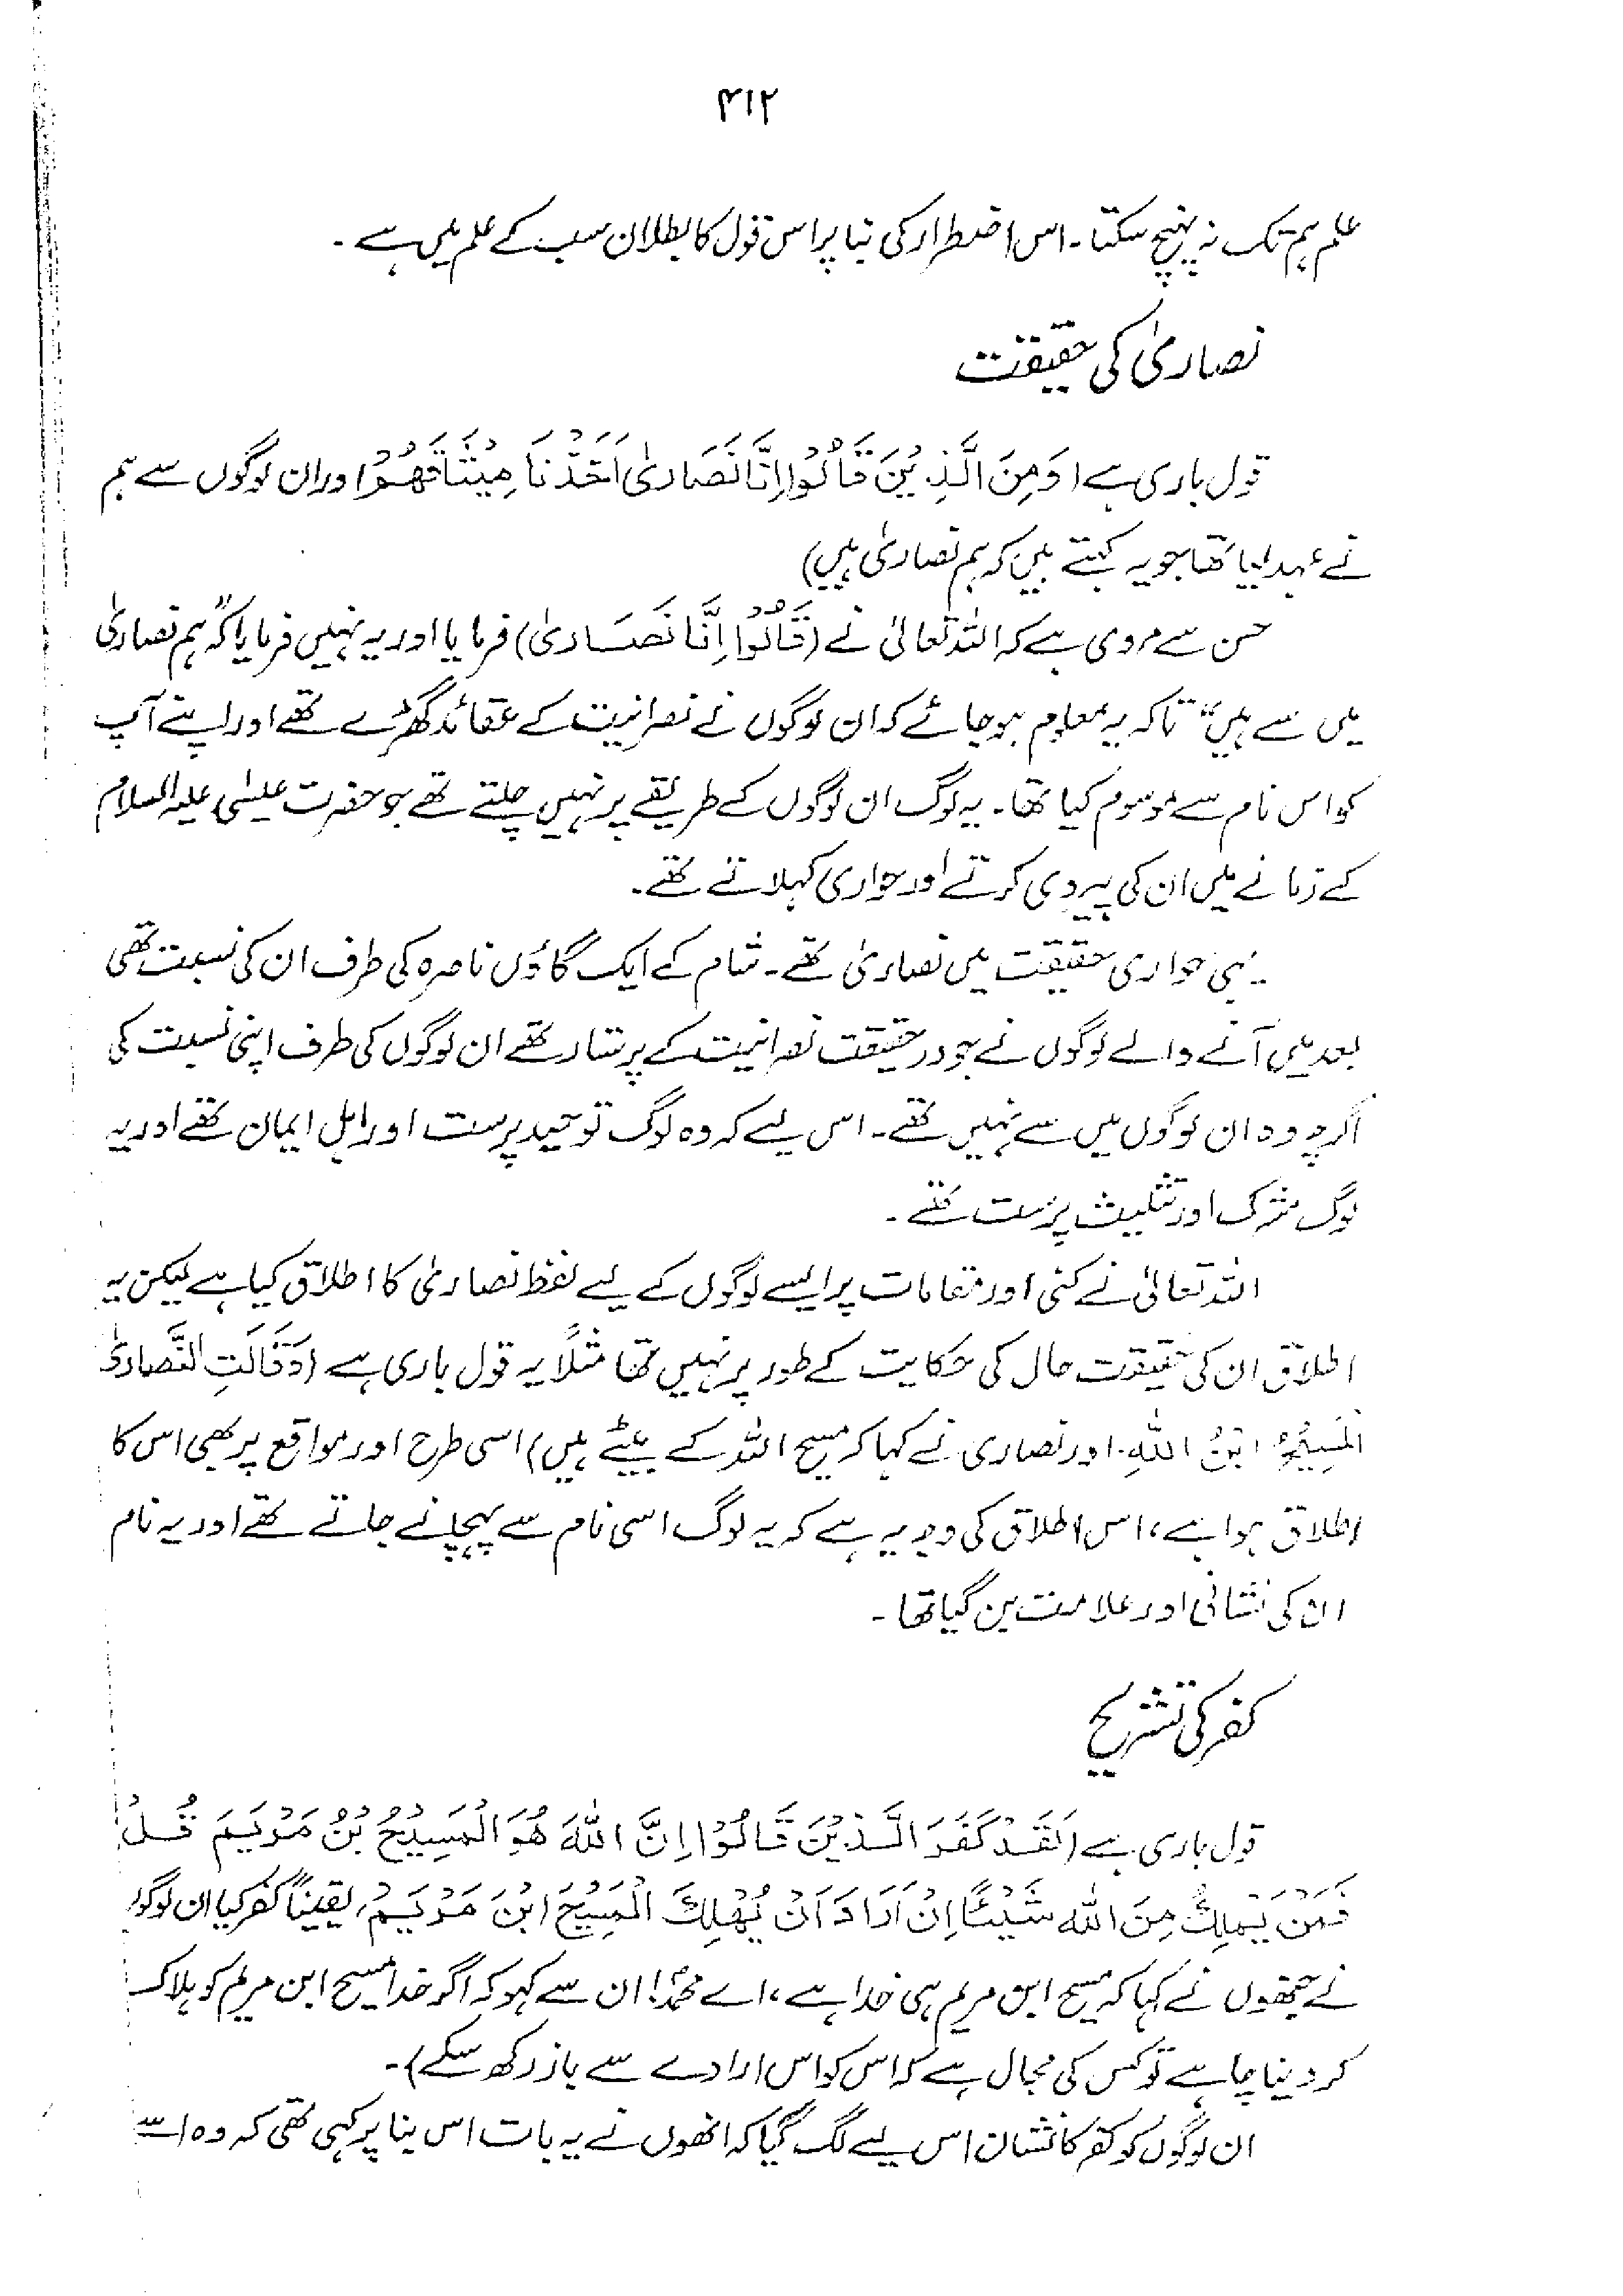 ۴۱۲
علم ہم تک نہ پہنچ سکتا۔ اس اضطرار کی بنا پر اس قول کا بطلان سب کے علم میں ہے۔
نصاریٰ کی حقیقت
قول باری ہے (وَمِنَ الَّذِیْنَ قَالُوْا اِنَّا نَصَارٰی اَخَذْنَا مِیْثَاقَهُمْ اور ان لوگوں سے ہم
نے عہد لیا تھا جو یہ کہتے ہیں کہ ہم نصاریٰ ہیں)
حسن سے مروی ہے کہ اللہ تعالیٰ نے (قَالُوْا اِنَّا نَصَارٰی) فرمایا اور یہ نہیں فرمایا کہ ”ہم نصاریٰ
میں سے ہیں“ تاکہ یہ معلوم ہو جائے کہ ان لوگوں نے نصرانیت کے عقائد گھڑے تھے اور اپنے آپ
کو اس نام سے موسوم کیا تھا۔ یہ لوگ ان لوگوں کے طریقے پر نہیں چلتے تھے جو حضرت عیسیٰ علیہ السلام
کے زمانے میں ان کی پیروی کرتے اور حواری کہلاتے تھے۔
یہی حواری حقیقت میں نصاریٰ تھے۔ شام کے ایک گاؤں ناصرہ کی طرف ان کی نسبت تھی
بعد میں آنے والے لوگوں نے جو درحقیقت نصرانیت کے پرستار تھے ان لوگوں کی طرف اپنی نسبت کی
اگرچہ وہ ان لوگوں میں سے نہیں تھے۔ اس لیے کہ وہ لوگ توحید پرست اور اہل ایمان تھے اور یہ
لوگ مشرک اور تثلیث پرست تھے۔
اللہ تعالیٰ نے کئی اور مقامات پر ایسے لوگوں کے لیے لفظ نصاریٰ کا اطلاق کیا ہے لیکن یہ
اطلاق ان کی حقیقت حال کی حکایت کے طور پر نہیں تھا مثلاً یہ قول باری ہے (وَقَالَتِ النَّصَارٰی
الْمَسِیْحُ ابْنُ اللّٰهِ۔ اور نصاریٰ نے کہا کہ مسیح اللہ کے بیٹے ہیں) اسی طرح اور مواقع پر بھی اس کا
اطلاق ہوا ہے، اس اطلاق کی وجہ یہ ہے کہ یہ لوگ اسی نام سے پہچانے جاتے تھے اور یہ نام
ان کی نشانی اور علامت بن گیا تھا۔
کفر کی تشریح
قول باری ہے (لَقَدْ کَفَرَ الَّذِیْنَ قَالُوْا اِنَّ اللّٰهَ هُوَ الْمَسِیْحُ بْنُ مَرْیَمَ قُلْ
فَمَنْ یَمْلِکُ مِنَ اللّٰه شَیْئًا اِنْ اَرَادَ اَنْ یُهْلِكَ الْمَسِیْحَ ابْنَ مَرْیَمَ، یقیناً کفر کیا ان لوگوں
نے جنھوں نے کہا کہ مسیح ابن مریم ہی خدا ہے، اے محمدؐ! ان سے کہو کہ اگر خدا مسیح ابن مریم کو ہلاک
کر دینا چاہے تو کس کی مجال ہے کہ اس کو اس ارادے سے باز رکھ سکے)۔
ان لوگوں کو کفر کا نشان اس لیے لگ گیا کہ انھوں نے یہ بات اس بنا پر کہی تھی کہ وہ اسے